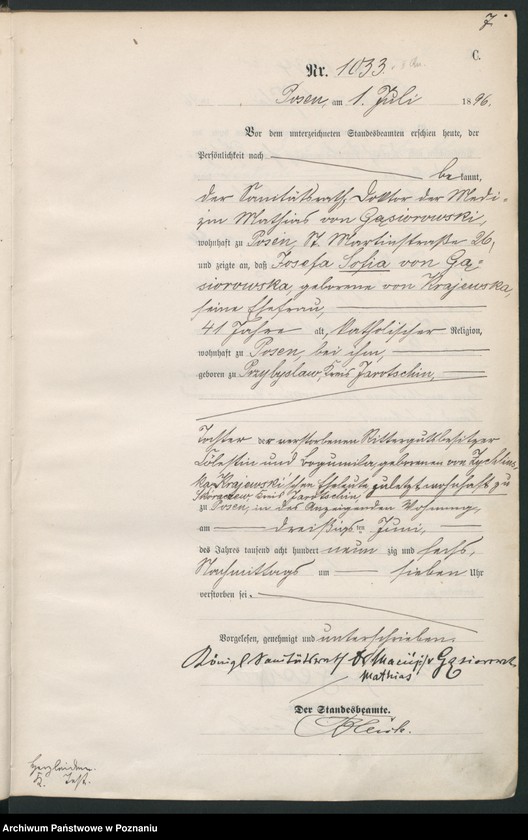 7
C.
Nr. 1033.
Posen, am 1. Juli 1896.
Vor dem unterzeichneten Standesbeamten erschien heute, der
Persönlichkeit nach
bekannt,
der Sanitätsrath, Doktor der Medi-
zin Mathias von Gąsiorowski,
wohnhaft zu Posen, St. Martinstraße 26,
und zeigte an, daß Josefa Sofia von Gą-
siorowska, geborene von Krajewska,
seine Ehefrau,
41 Jahre alt, katholischer Religion,
wohnhaft zu Posen, bei ihm,
geboren zu Przybyslaw, Kreis Jarotschin,
Tochter der verstorbenen Rittergutsbesitzer
Cölestin und Bogumila, geborenen von Zychlins-
ka, Krajewski'schen Eheleute, zuletzt wohnhaft zu
Kreis Jarotschin,
zu Posen, in des Anzeigenden Wohnung,
am dreißigsten Juni,
des Jahres tausend acht hundert neunzig und sechs,
Nachmittags um sieben Uhr
verstorben sei.
Vorgelesen, genehmigt und unterschrieben.
Königl Sanitätsrath Dr v Gąsiorowski
Mathias
Der Standesbeamte.
Herzleiden.
Archiwum Państwowe w Poznaniu